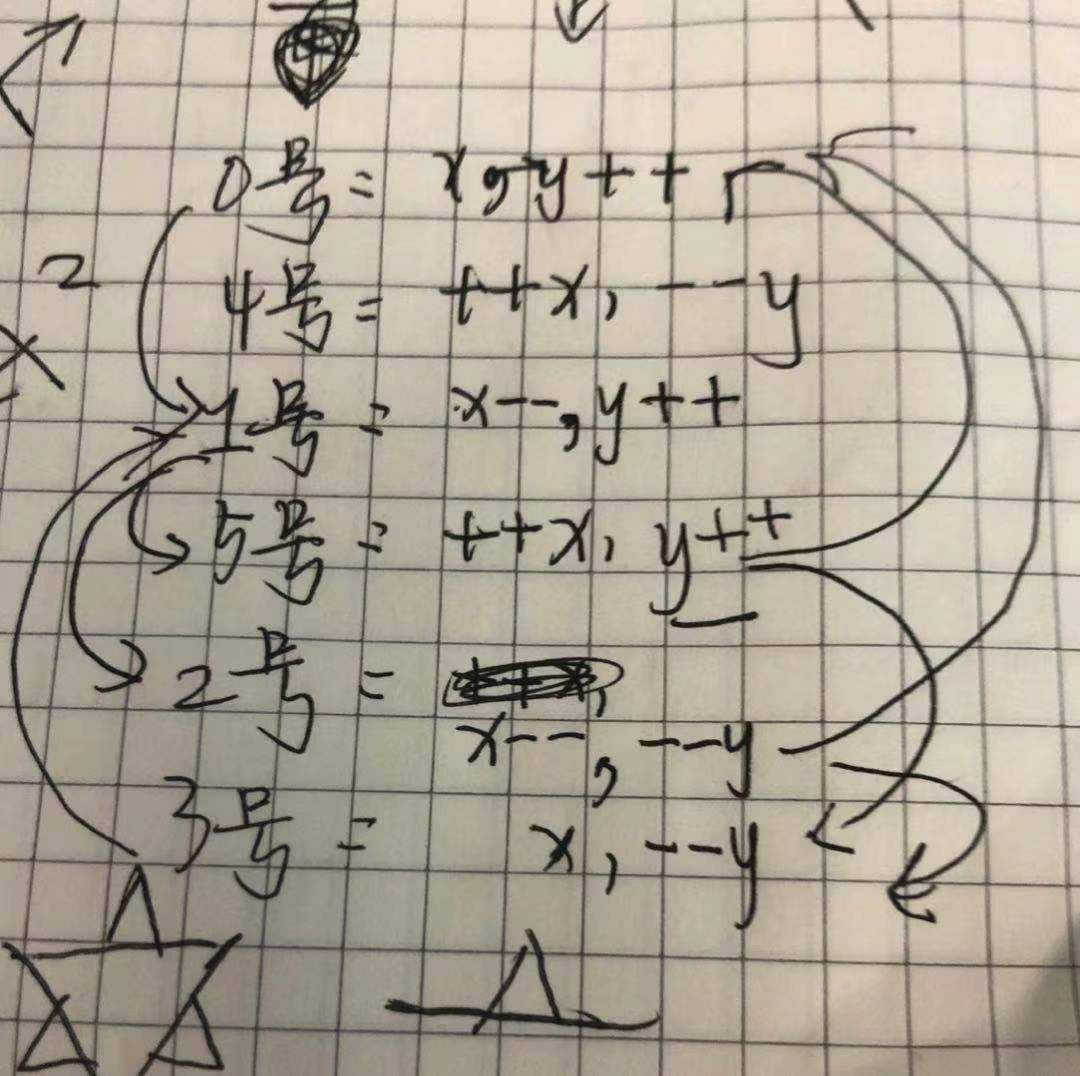 0号= x,y++
2
4号= ++x, --y
1号= x--,y++
5号= ++x, y++
2号=
x--,--y
3号= x,--y